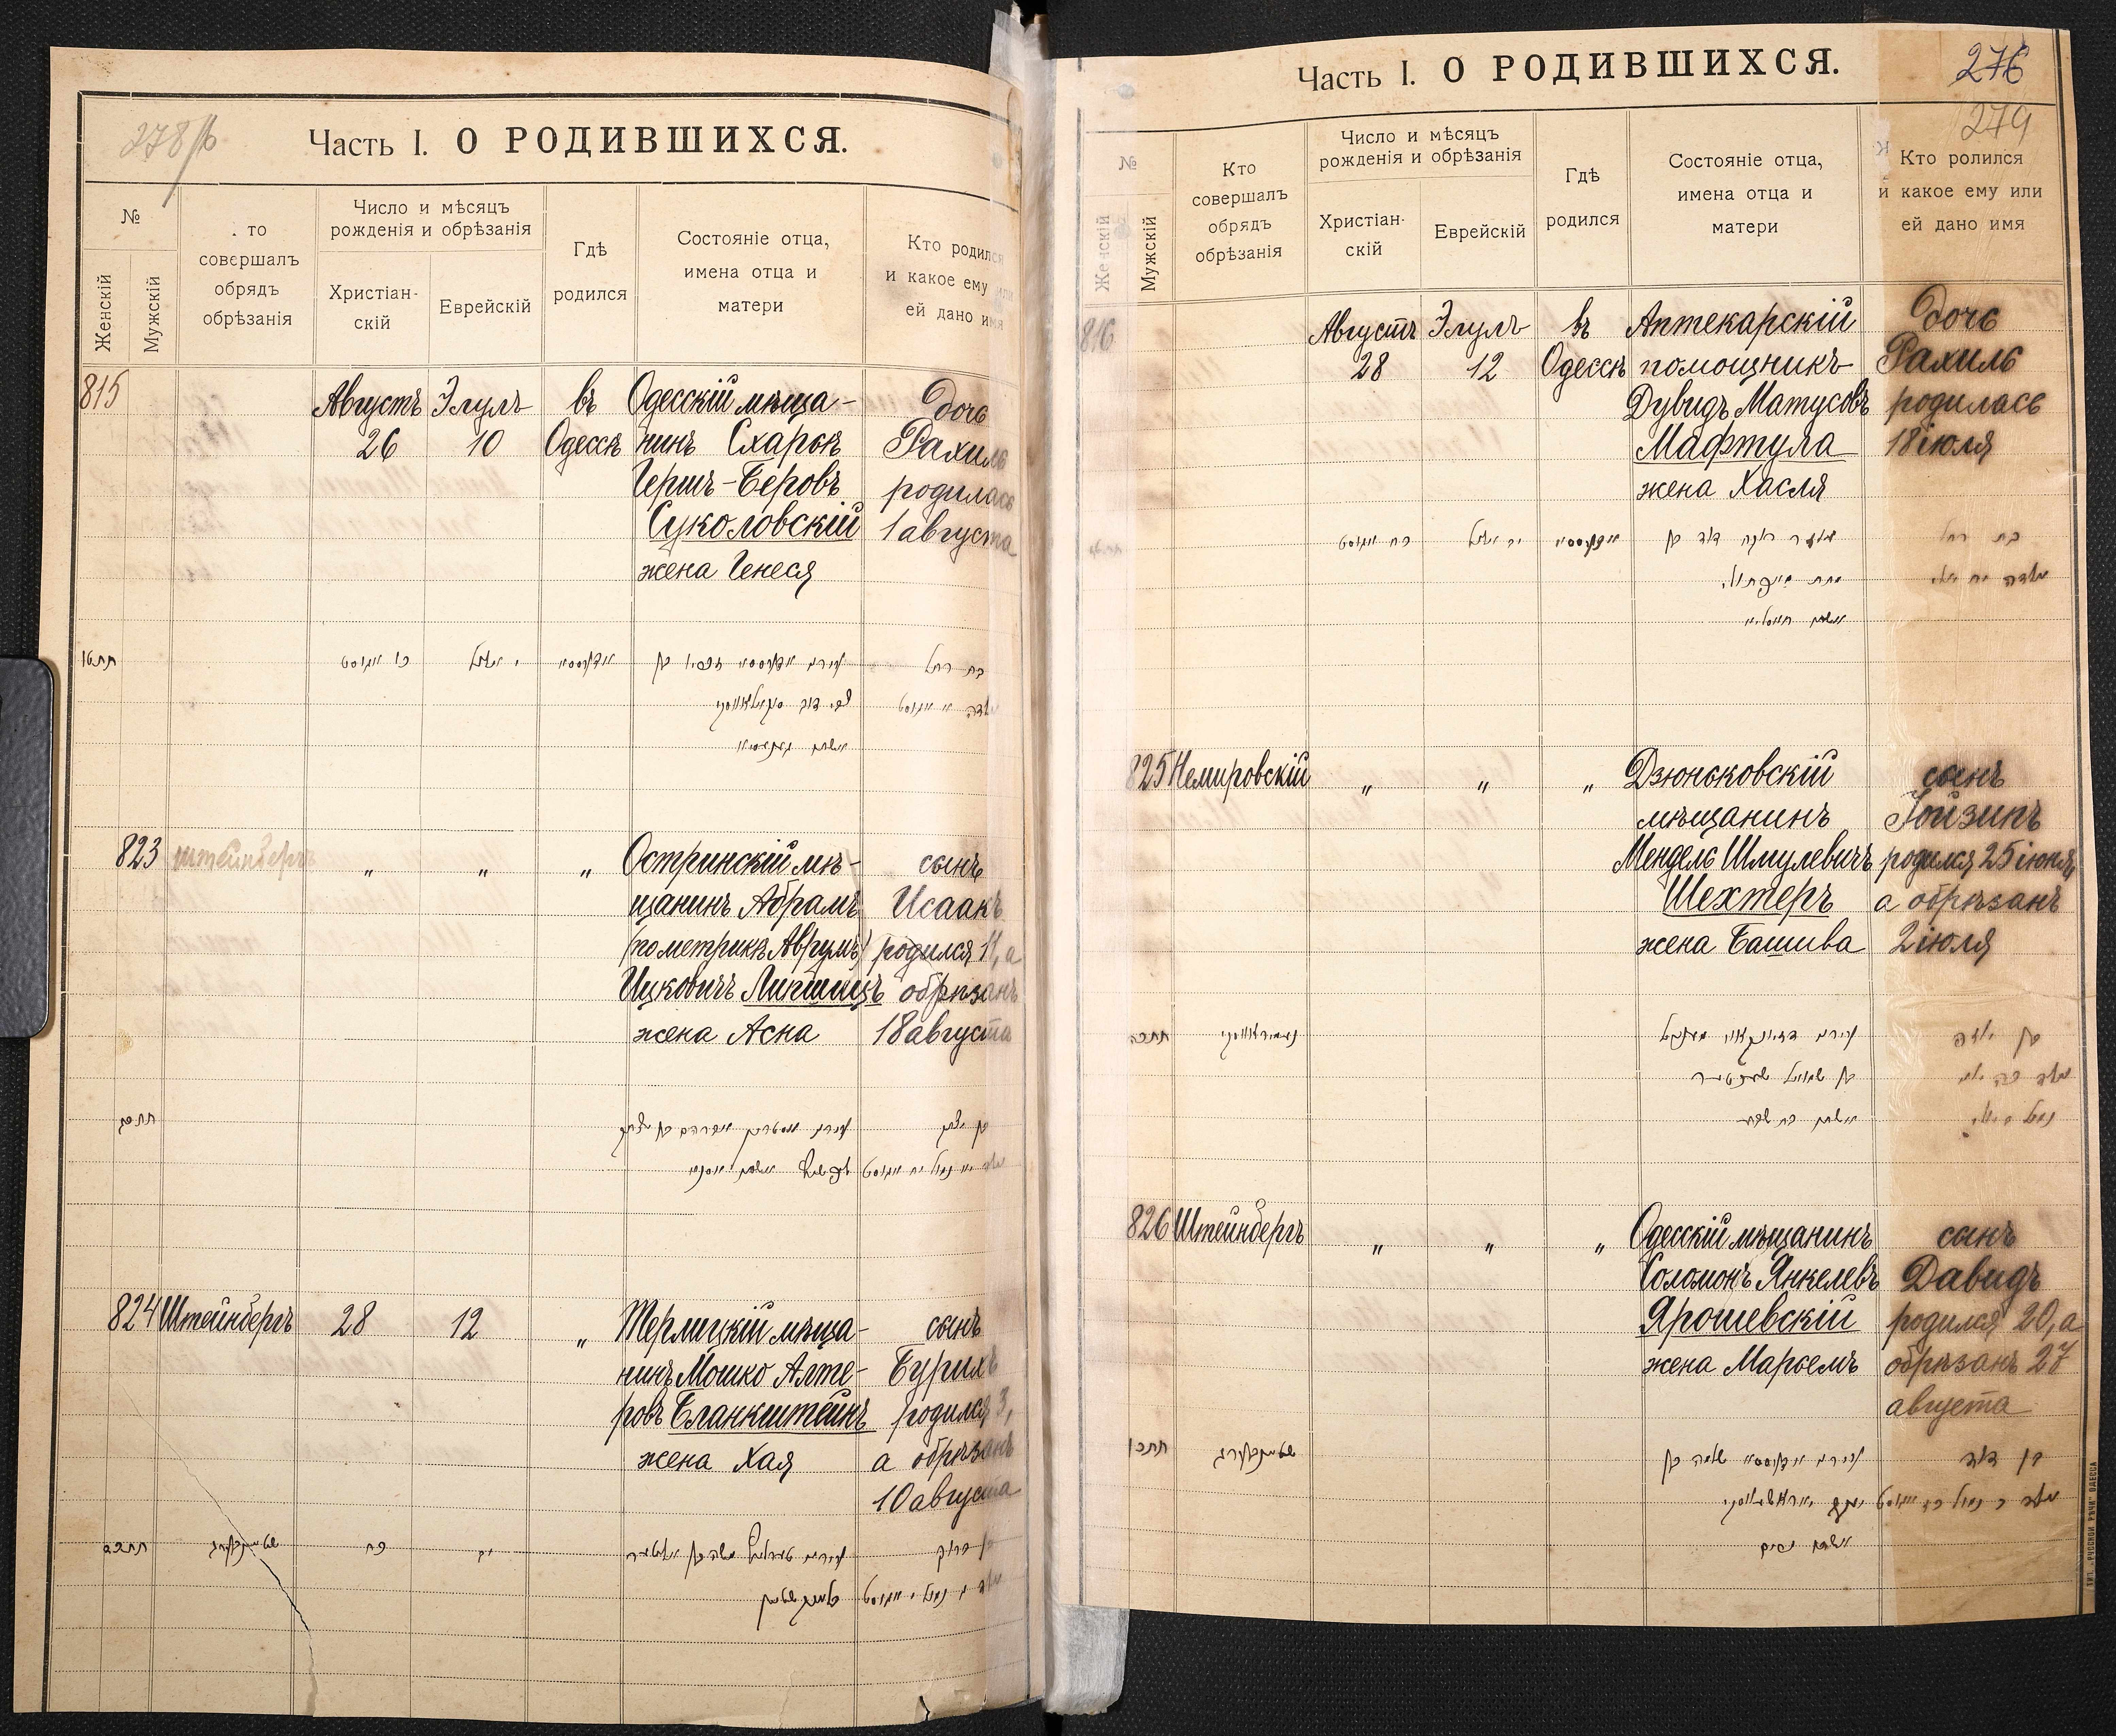 278/б
Часть I. О РОДИВШИХСЯ.
№
Женскій
Мужскій
то
совершалъ
обрядъ
обрѣзанія
Число и мѣсяцъ
рожденія и обрѣзанія
Христіан-
скій
Еврейскій
Гдѣ
родился
Состояніе отца,
имена отца и
матери
Кто родился
и какое ему или
ей дано имя
815
Августъ
26
Элулъ
10
въ
Одессѣ
Одесскій мѣща-
нинъ Схарья
Герш-Беровъ
Суколовскій
жена Генеся
дочь
Рахиль
родилась
1 августа
תתטו
כו אוגוסט
י אלול
אדעססא
בת רחל
823
Штейнбергъ
"
"
"
Остринскій мѣ-
щанинъ Абрамъ
(по метрикѣ Аврумъ)
Ицковичъ Липшицъ
жена Асна
сынъ
Исаакъ
родился 11, а
обрѣзанъ
18 августа
תתכג
בן יצחק
824
Штейнбергъ
28
12
"
Терлицкій мѣща-
нинъ Мошко Алте-
ровъ Бланкштейнъ
жена Хая
сынъ
Бурихъ
родился 3,
а обрѣзанъ
10 августа
תתכד
שטיינבערג
כח
יב
בן ברוך
276
279
Часть I. О РОДИВШИХСЯ.
№
Женскій
Мужскій
Кто
совершалъ
обрядъ
обрѣзанія
Число и мѣсяцъ
рожденія и обрѣзанія
Христіан-
скій
Еврейскій
Гдѣ
родился
Состояніе отца,
имена отца и
матери
Кто ролился
и какое ему или
ей дано имя
816
Августъ
28
Элулъ
12
въ
Одессѣ
Аптекарскій
помощникъ
Дувидъ Матусовъ
Мафтула
жена Хасля
дочь
Рахиль
родилась
18 іюля
כח אוגוסט
יב אלול
אדעססא
בת רחל
825
Немировскій
"
"
"
Дзюньковскій
мѣщанинъ
Мендель Шмулевичъ
Шехтеръ
жена Башива
сынъ
Іойзипъ
родился 25 іюня,
а обрѣзанъ
2 іюля
תתכה
נעמיראווסקי
826
Штейнбергъ
"
"
"
Одесскій мѣщанинъ
Соломонъ Янкелевъ
Ярошевскій
жена Марьемъ
сынъ
Давидъ
родился 20, а
обрѣзанъ 27
августа
תתכו
שטיינבערג
בן דוד
אשתו מרים
ТИП. „РУССКОЙ РѢЧИ" ОДЕССА